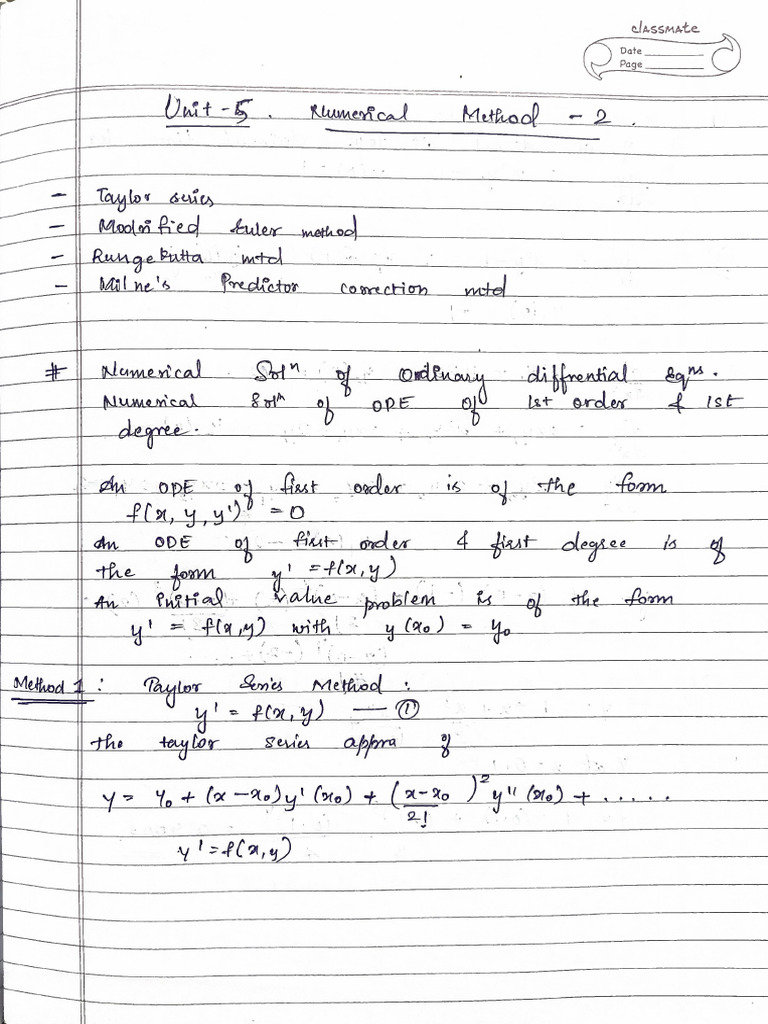 classmate
Date
Page
Unit-5. Numerical Method - 2.
- Taylor series
- Modnified Euler method
- Rungekutta mtd
- Milne's Predictor correction mtd
# Numerical Solⁿ of Ordinary diffrential Eqⁿˢ.
Numerical Solⁿ of ODE of 1st order & 1st
degree.
An ODE of first order is of the form
f(x, y, y') = 0
An ODE of first order & first degree is of
the form y' = f(x,y)
An initial value problem is of the form
y' = f(x,y) with y(x₀) = y₀
Method 1: Taylor Series Method:
y' = f(x,y) — ①
the taylor series appra of
y = y₀ + (x-x₀)y'(x₀) + (x-x₀/2!)² y''(x₀) + .....
y' = f(x,y)